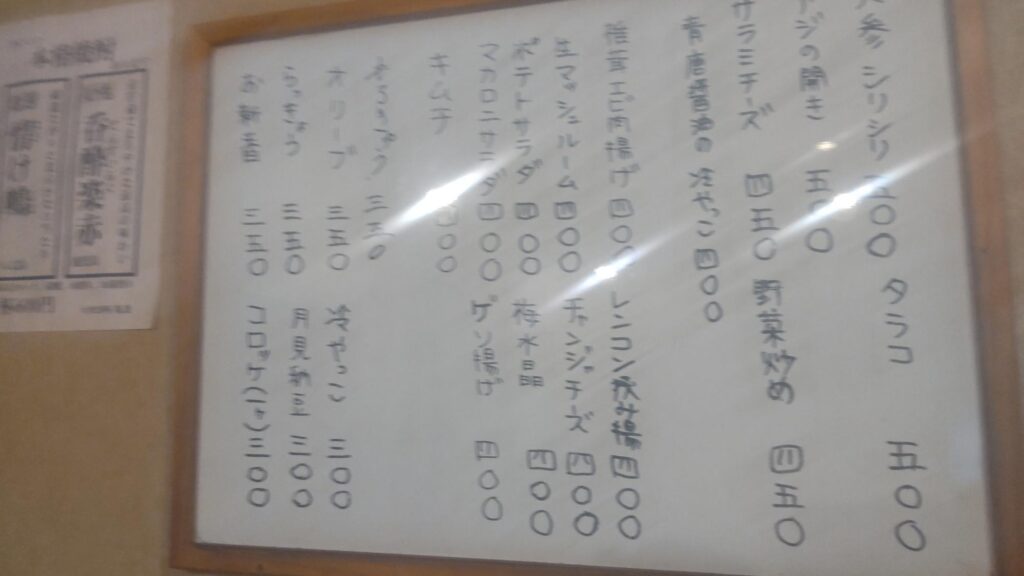 人参シリシリ 五〇〇 タラコ 五〇〇
アジの開き 五〇〇
サラミチーズ 四五〇 野菜炒め 四五〇
青唐醤油の冷やっこ 四〇〇
椎茸エビ肉揚げ 四〇〇 レンコン挟み揚 四〇〇
生マッシュルーム 四〇〇 チャンジャチーズ 四〇〇
ポテトサラダ 四〇〇 梅水晶 四〇〇
マカロニサラダ 四〇〇 ゲソ揚げ 四〇〇
キムチ 四〇〇
三五〇
オリーブ 三五〇 冷やっこ 三〇〇
らっきょう 三五〇 月見納豆 三〇〇
お新香 三五〇 コロッケ(二ヶ) 三〇〇